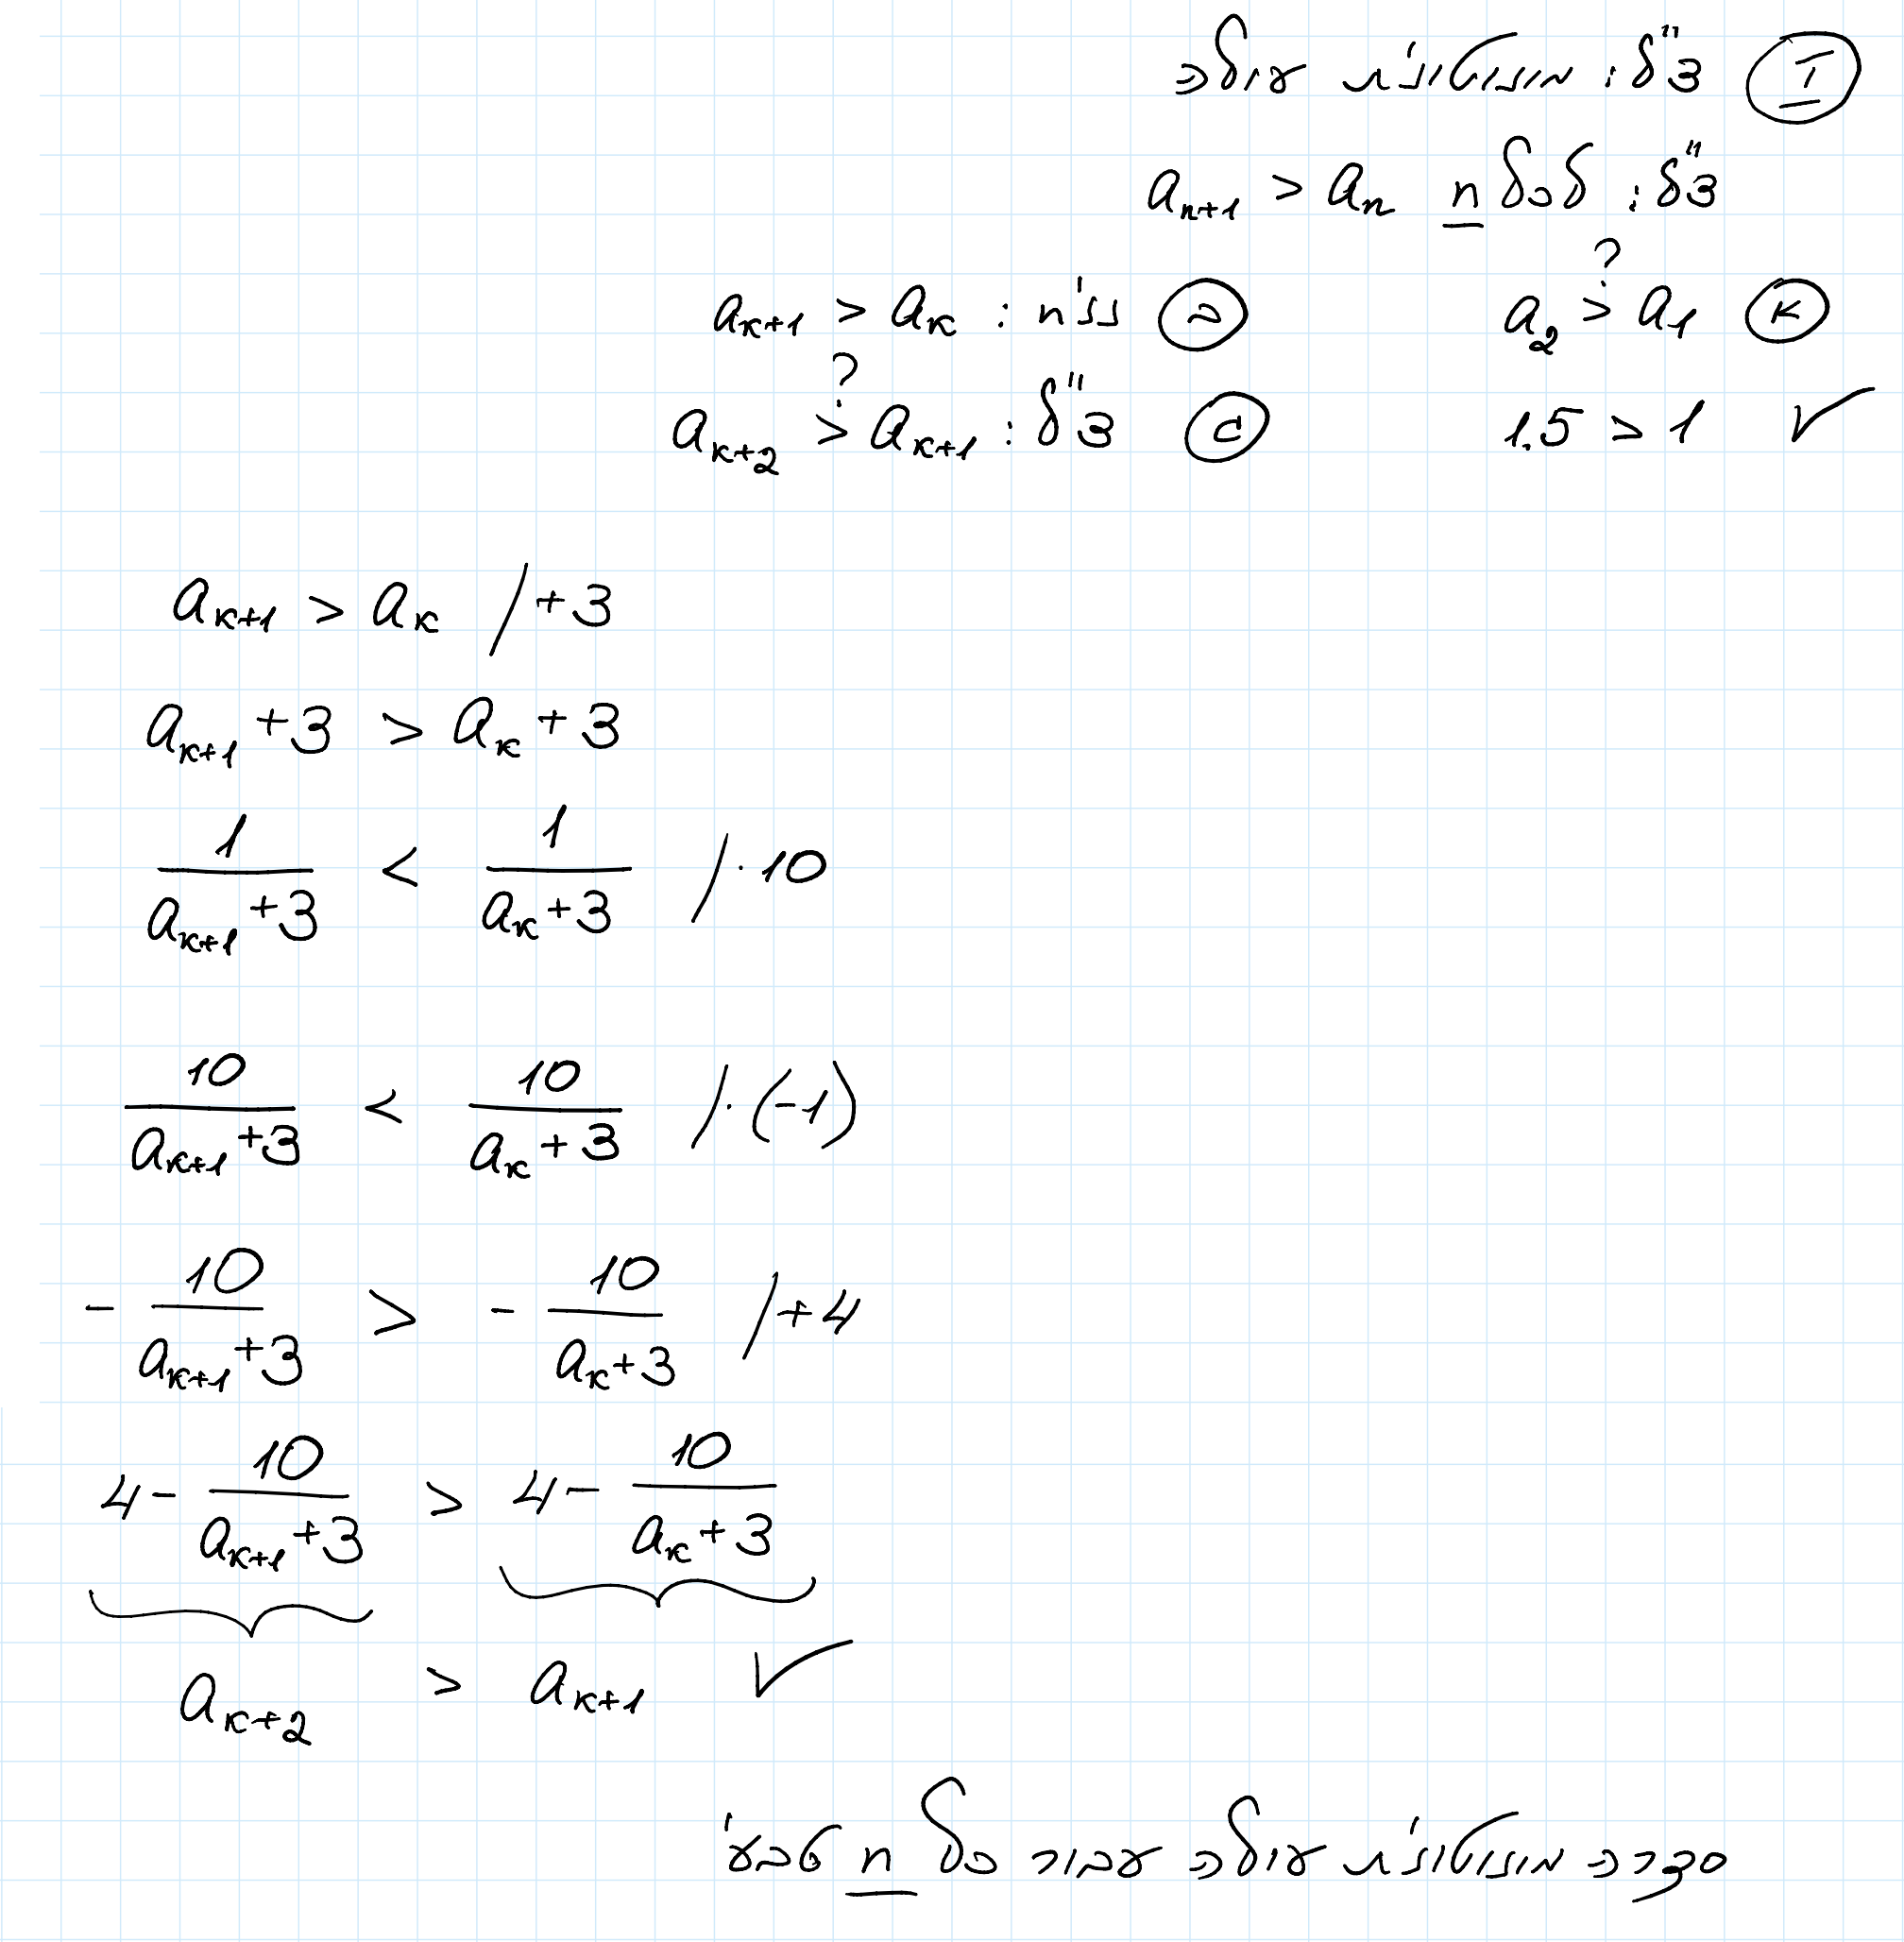 I צ"ל: מונוטונית עולה
צ"ל: לכל n a_{n+1} > a_n
א a_2 >? a_1
1.5 > 1 ✓
ב נניח: a_{k+1} > a_k
ג צ"ל: a_{k+2} >? a_{k+1}
a_{k+1} > a_k / +3
a_{k+1} + 3 > a_k + 3
1/(a_{k+1} + 3) < 1/(a_k + 3) / · 10
10/(a_{k+1} + 3) < 10/(a_k + 3) / · (-1)
- 10/(a_{k+1} + 3) > - 10/(a_k + 3) / +4
4 - 10/(a_{k+1} + 3) > 4 - 10/(a_k + 3)
a_{k+2} > a_{k+1} ✓
סדרה מונוטונית עולה עבור כל n טבעי